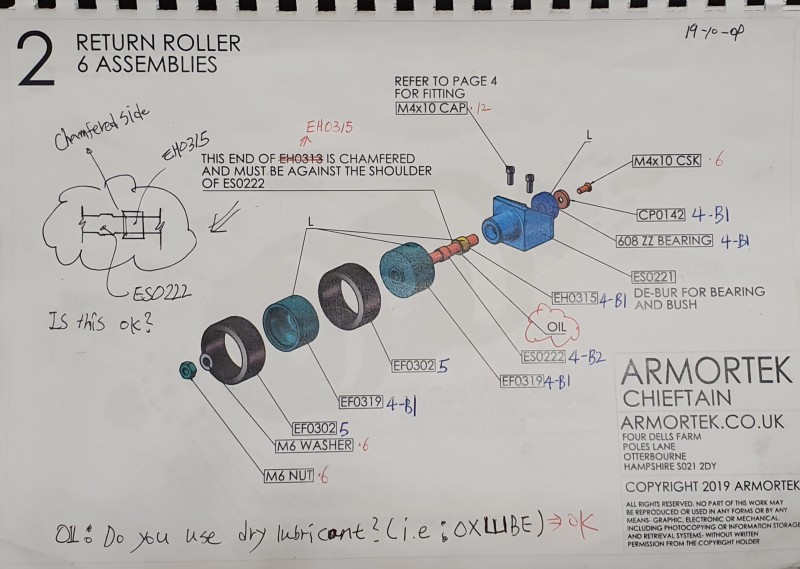 2
RETURN ROLLER
6 ASSEMBLIES
19-10-09
REFER TO PAGE 4
FOR FITTING
M4x10 CAP · 12
Chamfered side
EH0315
EH0315
THIS END OF EH0313 IS CHAMFERED
AND MUST BE AGAINST THE SHOULDER
OF ES0222
L
M4x10 CSK · 6
CP0142 4-B1
608 ZZ BEARING 4-B1
ES0221
DE-BUR FOR BEARING
AND BUSH
L
EH0315 4-B1
OIL
ES0222
Is this ok?
ES0222 4-B2
EF0302 5
EF0319 4-B1
EF0319 4-B1
EF0302 5
M6 WASHER · 6
M6 NUT · 6
ARMORTEK
CHIEFTAIN
ARMORTEK.CO.UK
FOUR DELLS FARM
POLES LANE
OTTERBOURNE
HAMPSHIRE SO21 2DY
COPYRIGHT 2019 ARMORTEK
ALL RIGHTS RESERVED. NO PART OF THIS WORK MAY
BE REPRODUCED OR USED IN ANY FORMS OR BY ANY
MEANS- GRAPHIC, ELECTRONIC OR MECHANICAL,
INCLUDING PHOTOCOPYING OR INFORMATION STORAGE
AND RETRIEVAL SYSTEMS- WITHOUT WRITTEN
PERMISSION FROM THE COPYRIGHT HOLDER
OIL: Do you use dry lubricant? (i.e: OXШBE) ⇒ OK